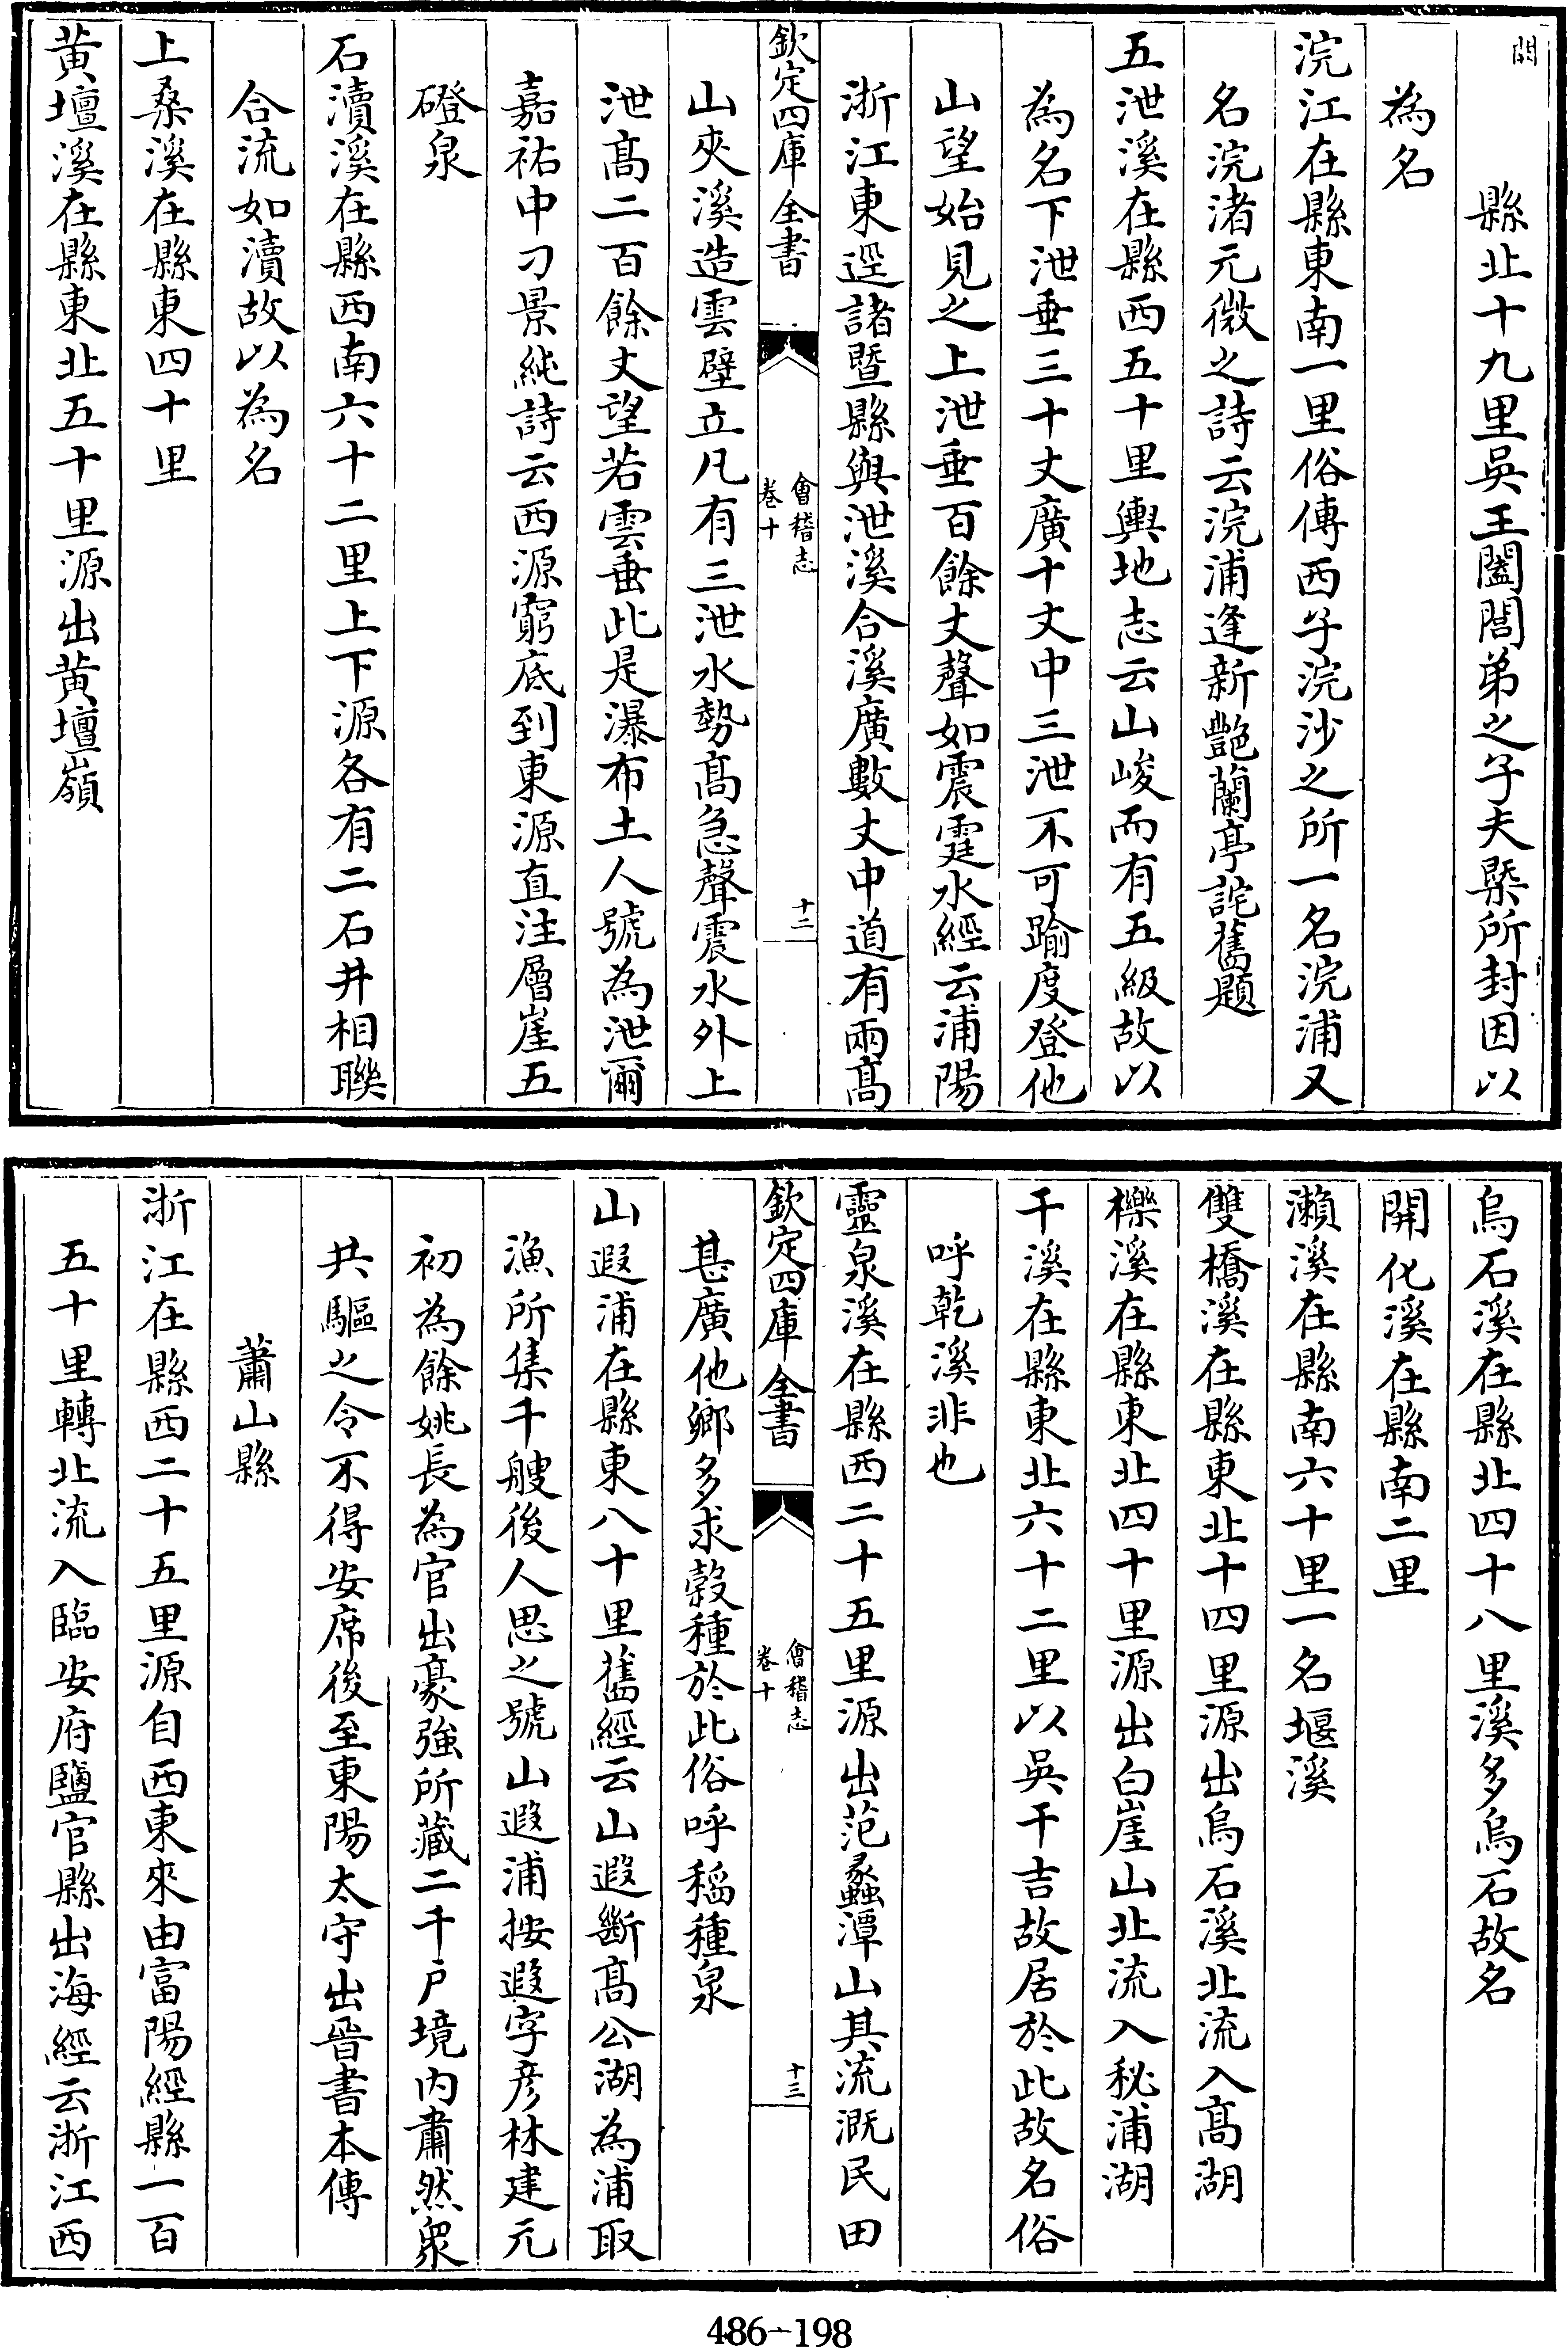 闕　　縣北十九里吳王闔閭弟之子夫槩所封因以
為名
浣江在縣東南一里俗傳西子浣沙之所一名浣浦又
名浣渚元微之詩云浣浦逢新艶蘭亭詫舊題
五泄溪在縣西五十里輿地志云山峻而有五級故以
為名下泄垂三十丈廣十丈中三泄不可踰度登他
山望始見之上泄垂百餘丈聲如震霆水經云浦陽
浙江東逕諸暨縣與泄溪合溪廣數丈中道有兩髙
欽定四庫全書
會稽志
卷十
十二
山夾溪造雲壁立凡有三泄水勢髙急聲震水外上
泄髙二百餘丈望若雲垂此是瀑布土人號為泄爾
嘉祐中刁景純詩云西源窮底到東源直注層崖五
磴泉
石瀆溪在縣西南六十二里上下源各有二石井相聨
合流如瀆故以為名
上桑溪在縣東四十里
黄壇溪在縣東北五十里源出黄壇嶺
烏石溪在縣北四十八里溪多烏石故名
開化溪在縣南二里
瀨溪在縣南六十里一名堰溪
雙橋溪在縣東北十四里源出烏石溪北流入髙湖
櫟溪在縣東北四十里源出白崖山北流入秘浦湖
干溪在縣東北六十二里以吳干吉故居於此故名俗
呼乾溪非也
靈泉溪在縣西二十五里源出范蠡潭山其流溉民田
欽定四庫全書
會稽志
卷十
十三
甚廣他鄉多求穀種於此俗呼稻種泉
山遐浦在縣東八十里舊經云山遐斷髙公湖為浦取
漁所集千艘後人思之號山遐浦按遐字彦林建元
初為餘姚長為官出豪強所藏二千户境内肅然衆
共驅之令不得安席後至東陽太守出晉書本傳
蕭山縣
浙江在縣西二十五里源自西東來由富陽經縣一百
五十里轉北流入臨安府鹽官縣出海經云浙江西
486-198